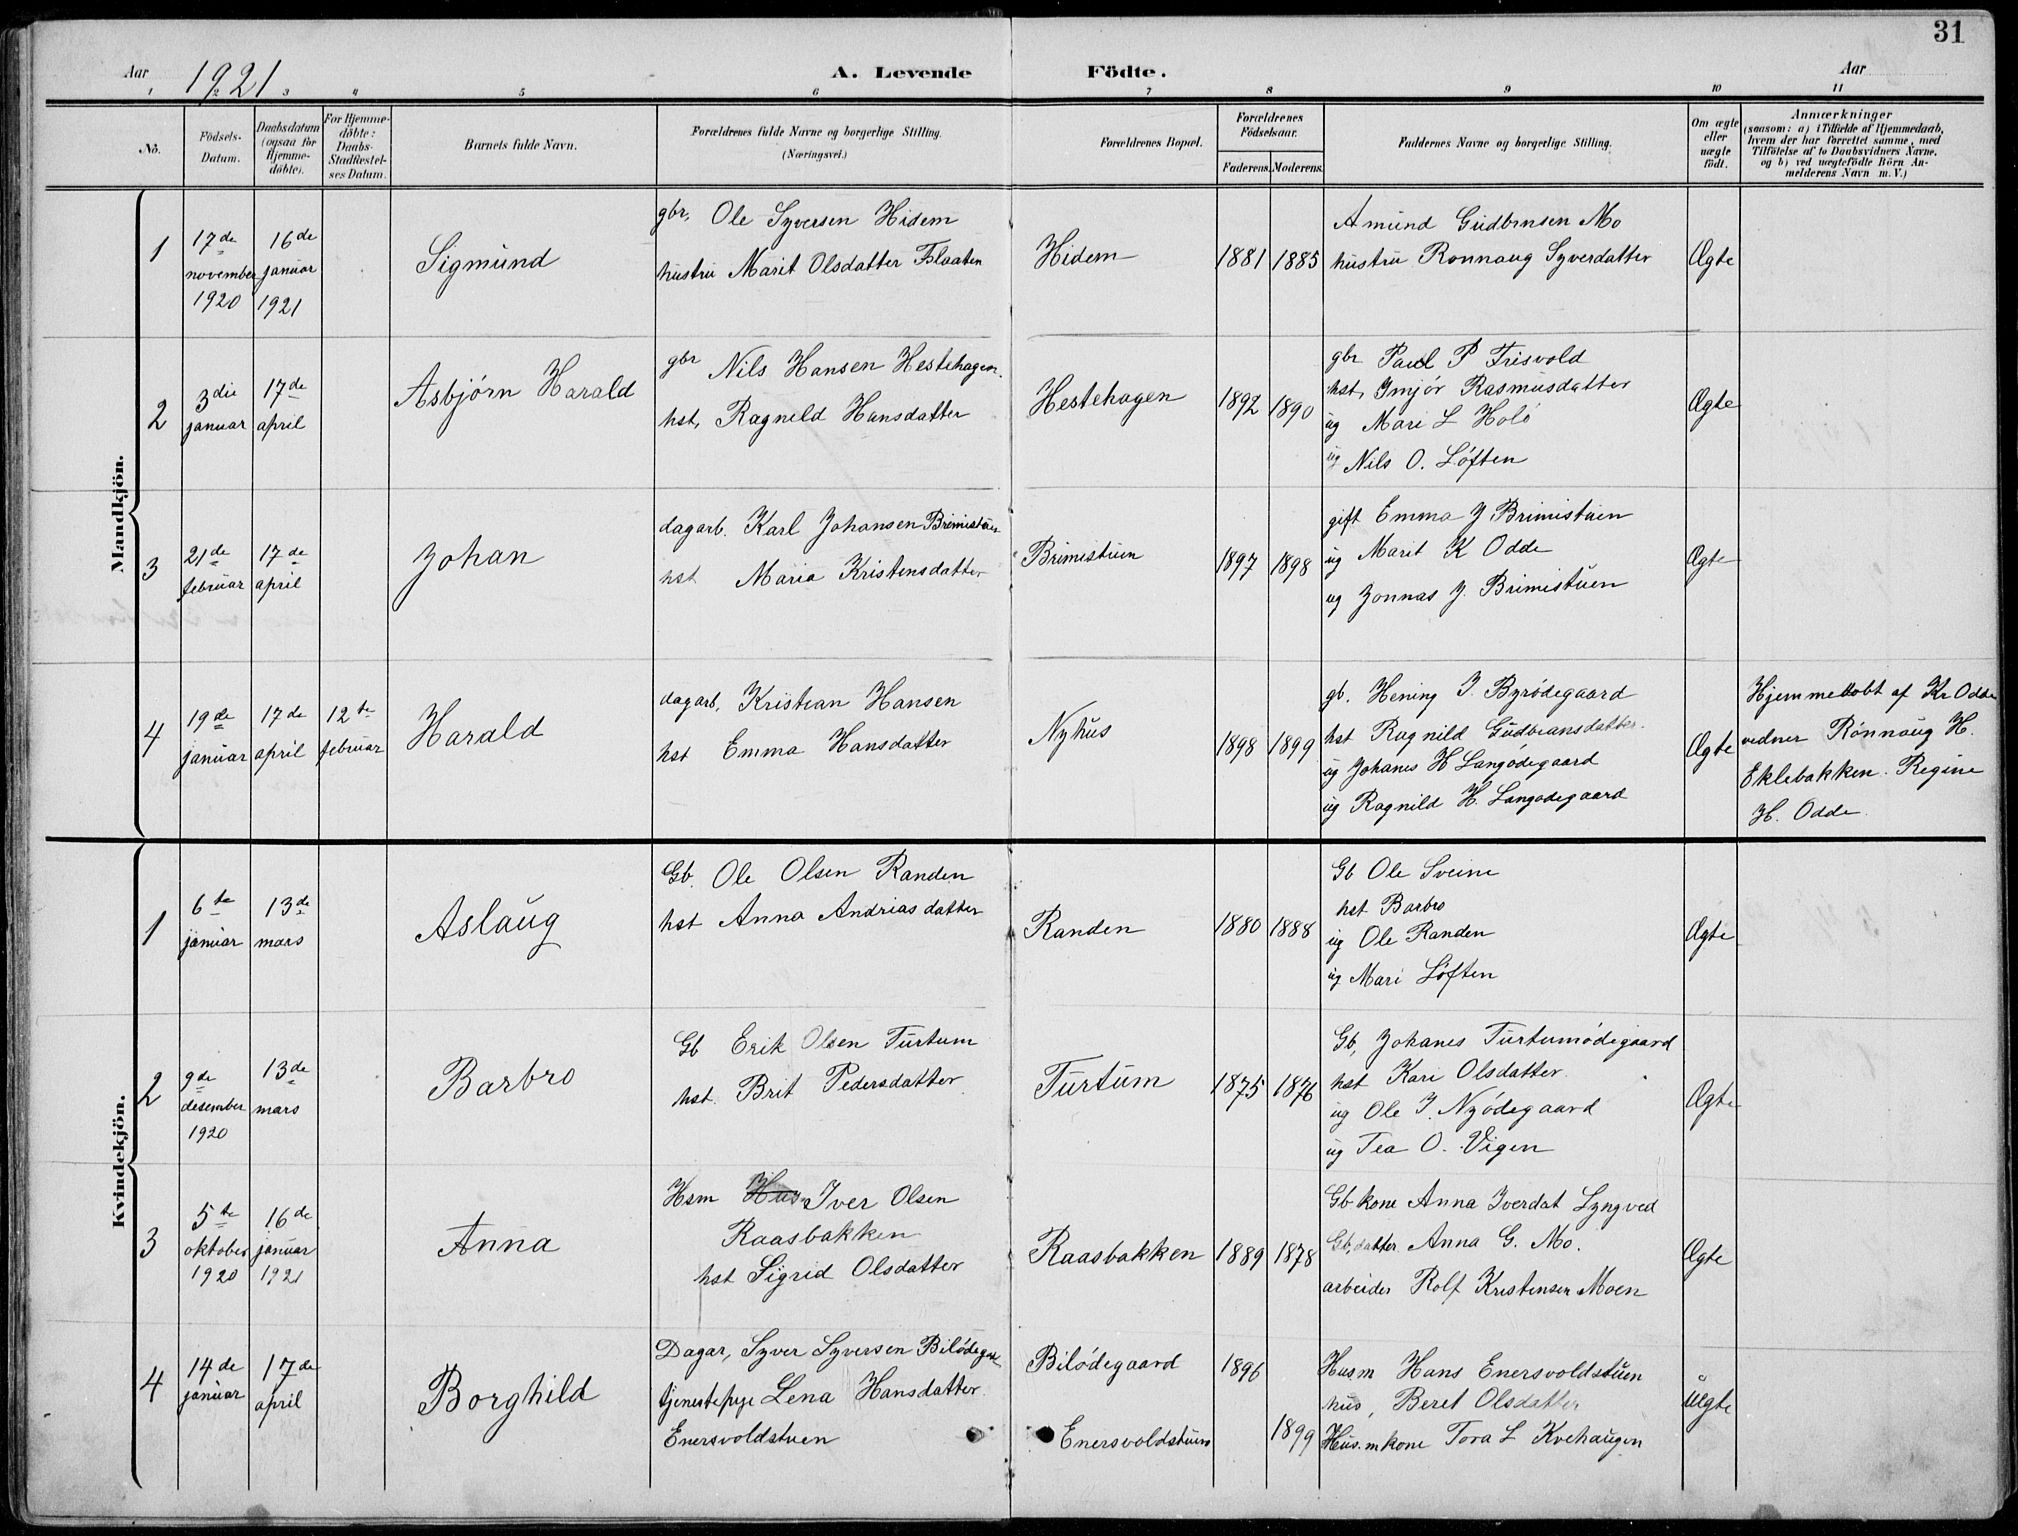 31
Aar 1921 A. Levende Födte. Aar
1 2 3 4 5 6 7 8 9 10 11
No.
Födsels-
Datum.
Daabsdatum
(ogsaa for
Hjemme-
döbte).
For Hjemme-
döbte:
Daabs-
Stadfæstel-
ses Datum.
Barnets fulde Navn.
Forældrenes fulde Navne og borgerlige Stilling.
(Næringsvei.)
Forældrenes Bopæl.
Forældrenes
Födselsaar.
Faderens. Moderens.
Faddernes Navne og borgerlige Stilling.
Om ægte
eller
uægte
födt.
Anmærkninger
(saasom: a) i Tilfælde af Hjemmedaab,
hvem der har forrettet samme, med
Tilföielse af to Daabsvidners Navne,
og b) ved uægtefödte Börn An-
melderens Navn m. V.)
Mandkjön.
1
17de
november
1920
16de
januar
1921
Sigmund
gbr, Ole Syversen Hidem
hustru Marit Olsdatter Flaaten
Hidem
1881 1885
Amund Gudbrnsen Mo
hustru Ronnaug Syverdatter
Ægte
2
3die
januar
17de
april
Asbjørn Harald
gbr Nils Hansen Hestehagen.
hst, Ragnild Hansdatter
Hestehagen
1892 1890
gbr Paul P Frisvold
hst, Imjør Rasmusdatter
ug Mari L Holø
ug Nils O. Løften
Ægte
3
21de
februar
17de
april
Johan
dagarb. Karl Johansen Brimistuen
hst Maria Kristensdatter
Brimistuen
1897 1898
gift Emma J Brimistuen
ug Marit K Odde
ug Jonnas J. Brimistuen
Ægte
4
19de
januar
17de
april
12te
februar
Harald
dagarb, Kristian Hansen
hst Emma Hansdatter
Nyhus
1898 1899
gb. Hening I. Byrødegaard
hst Ragnild Gudbransdatter.
ug Johanes H Langødegaard
ug Ragnild H. Langødegaard
Ægte
Hjemmedobt af Kr Odde
vedner Rønnaug H.
Eklebakken. Regine
H. Odde.
Kvindekjön.
1
6te
januar
13de
mars
Aslaug
Gb. Ole Olsen Randen
hst Anna Andriasdatter
Randen
1880 1888
Gb Ole Sveine
hst Barbro
ug Ole Randen
ug Mari Løften
Ægte
2
9de
desember
1920
13de
mars
Barbro
Gb Erik Olsen Turtum
hst. Brit Pedersdatter
Turtum
1875 1876
Gb, Johanes Turtumødegaard
hst Kari Olsdatter.
ug Ole J. Nyødegaard
ug Tea O. Vigen
Ægte
3
5te
oktober
1920
16de
januar
1921
Anna
Hsm Hus Iver Olsen
Raasbakken
hst Sigrid Olsdatter
Raasbakken
1889 1878
Gb kone Anna Iverdat Lyngved
Gb, datter Anna G. Mo.
arbeider Rolf Kristensen Moen
Ægte
4
14de
januar
17de
april
Borghild
Dagar, Syver Syversen
tjenestepige Lena Hansdatter.
Enersvoldstuen
Bilødegaard
Enersvoldstuen
1896
1899
Husm Hans Enersvoldstuen
hus, Beret Olsdatter
Hus.mkone Tora L Kvehaugen
Uegte